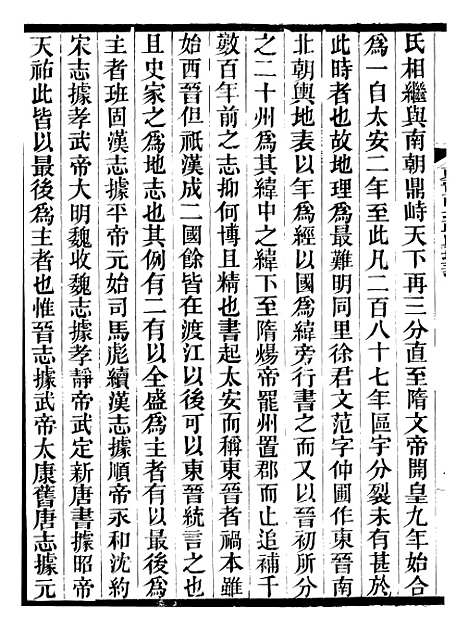 氏相繼與南朝鼎峙天下再三分直至隋文帝開皇九年始合
爲一自太安二年至此凡二百八十七年區宇分裂未有甚於
此時者也故地理爲最難明同里徐君文范字仲圃作東晉南
北朝輿地表以年爲經以國爲緯旁行書之而又以晉初所分
之二十州爲其緯中之緯下至隋煬帝罷州置郡而止追補千
數百年前之志抑何博且精也書起太安而稱東晉者禍本雖
始西晉但祇漢成二國餘皆在渡江以後可以東晉統言之也
且史家之爲地志其例有二有以全盛爲主者有以最後爲
主者班固漢志據平帝元始司馬彪續漢志據順帝永和沈約
宋志據孝武帝大明魏收魏志據孝靜帝武定新唐書據昭帝
天祐此皆以最後爲主者也惟晉志據武帝太康舊唐志據元